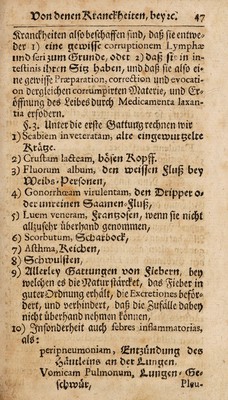 Von denen Kranckheiten, bey ꝛc. 47
Kranckheiten also beschaffen sind, daß sie entwe-
der 1) eine gewisse corruptionem Lymphæ
und seri zum Grunde, oder 2) daß sie in in-
testinis ihren Sitz haben, und daß sie also ei-
ne gewisse Præparation, correction und evocati-
on dergleichen corrumpirten Materie, und Er-
öffnung des Leibes durch Medicamenta laxan-
tia erfodern.
§. 3. Unter die erste Gattung rechnen wir
1) Scabiem inveteratam, alte eingewurzelte
Krätze.
2) Crustam lacteam, bösen Kopff.
3) Fluorum album, den weissen Fluß bey
Weibs-Personen,
4) Gonorrhœam virulentam, den Dripper o-
der unreinen Saamen-Fluß,
5) Luem veneram, Franzosen, wenn sie nicht
allzusehr überhand genommen,
6) Scorbutum, Scharbock,
7) Asthma, Reichen,
8) Schwulsten,
9) Allerley Gattungen von Fiebern, bey
welchen es die Natur stärcket, das Fieber in
guter Ordnung erhält, die Excretiones beför-
dert, und verhindert, daß die Zufälle dabey
nicht überhand nehmen können,
10) Insonderheit auch febres inflammatorias,
als:
peripneumoniam, Entzündung des
Häutleins an der Lungen.
Vomicam Pulmonum, Lungen-Ge-
schwür,
Pleu-